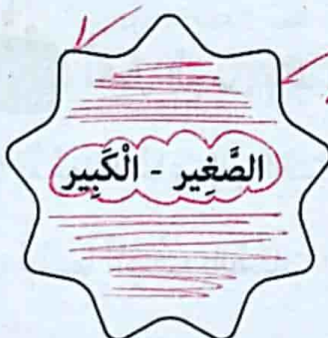 الصَّغِير - الْكَبِير